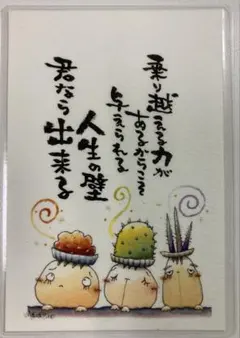 乗り越える力が
あるからこそ
与えられる
人生の壁
君なら出来る